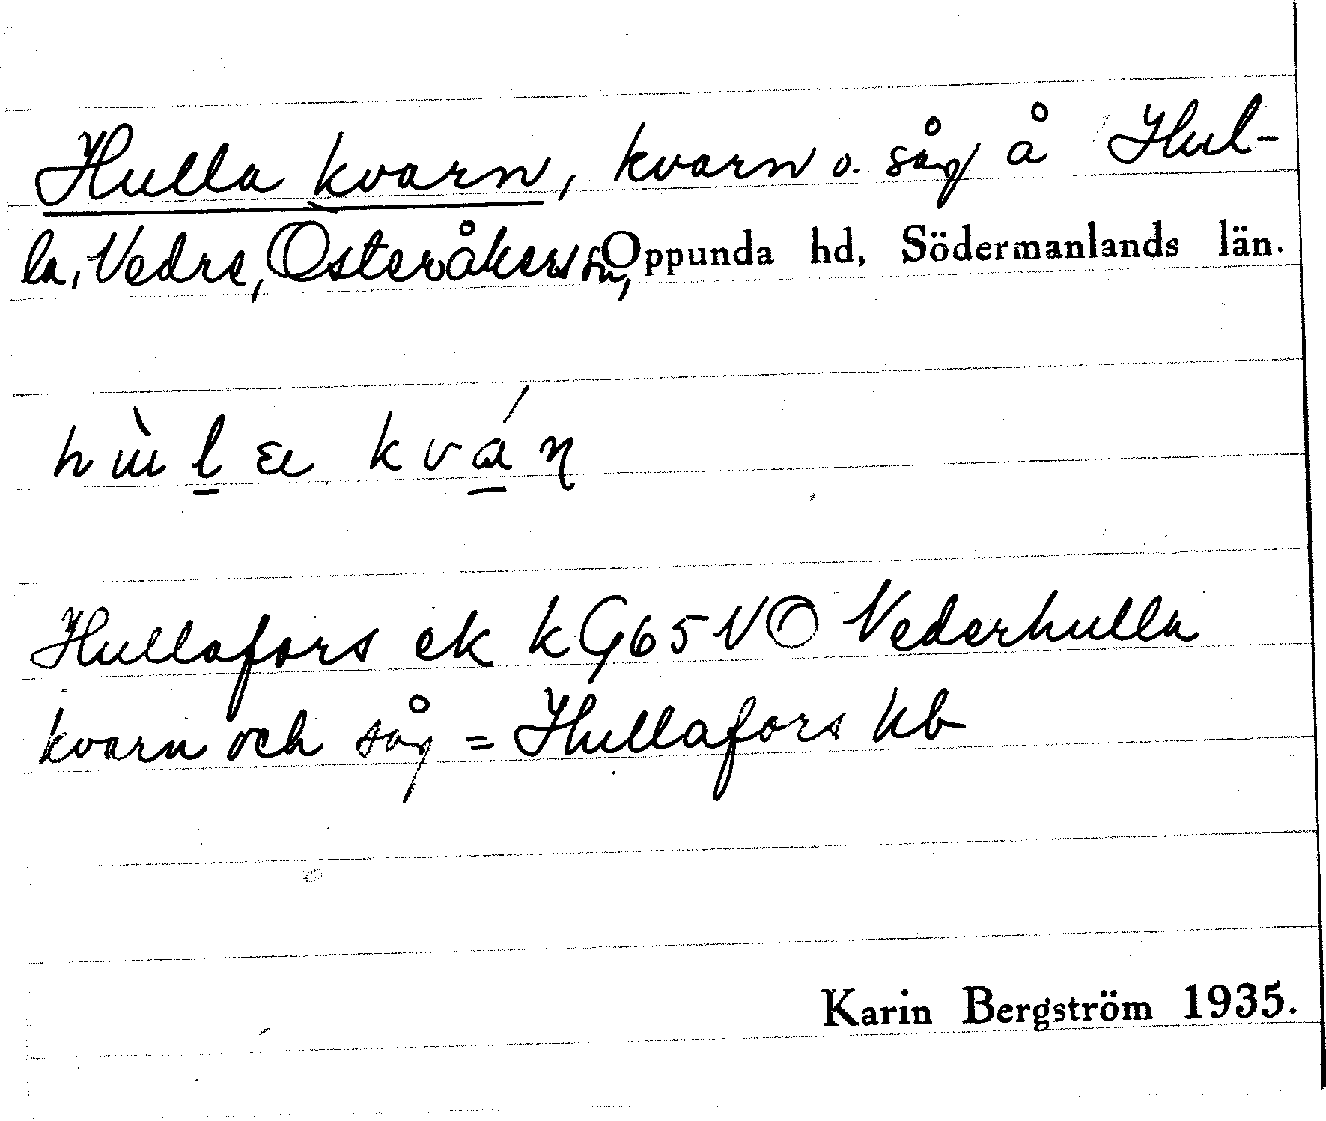 Hulla kvarn, kvarn o. såg å Hul-
la, Vedre, Österåkers sn, Oppunda hd, Södermanlands län.
Hullafors ek kG65VO Vederhulla
kvarn och såg = Hullafors kb
Karin Bergström 1935.